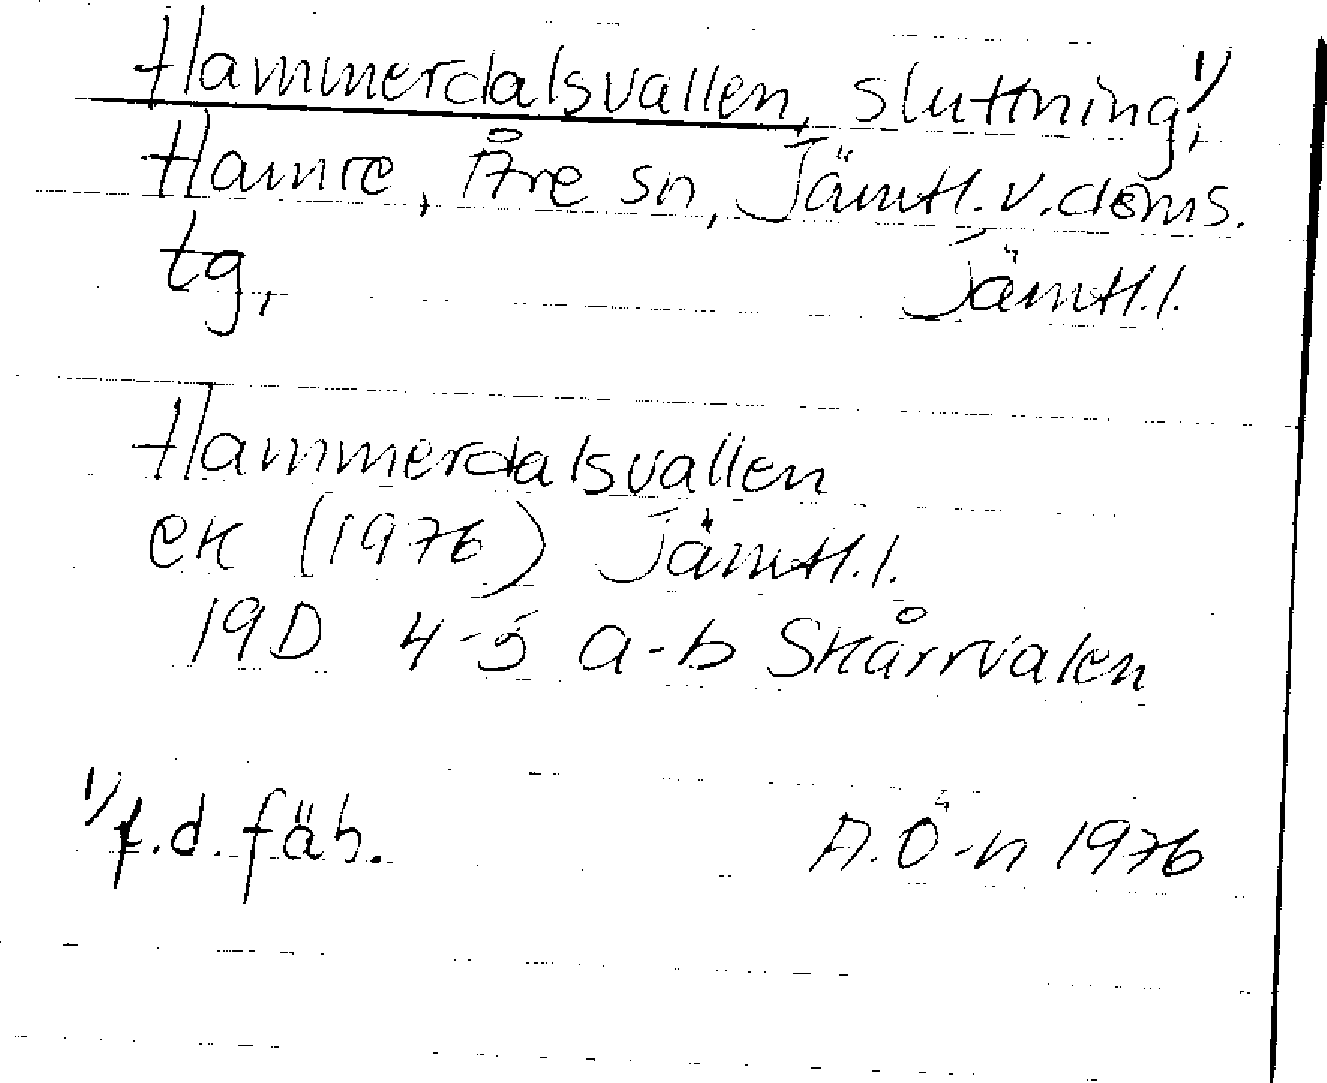 Hammerdalsvallen, sluttning,1/
Hamre, Åre sn, Jämtl. v. doms.
tg, Jämtl. l.
Hammerdalsvallen
ek (1976) Jämtl. l.
19D 4-5 a-b Skårrvalen
1/ f.d. fäb. A. Ö-n 1976